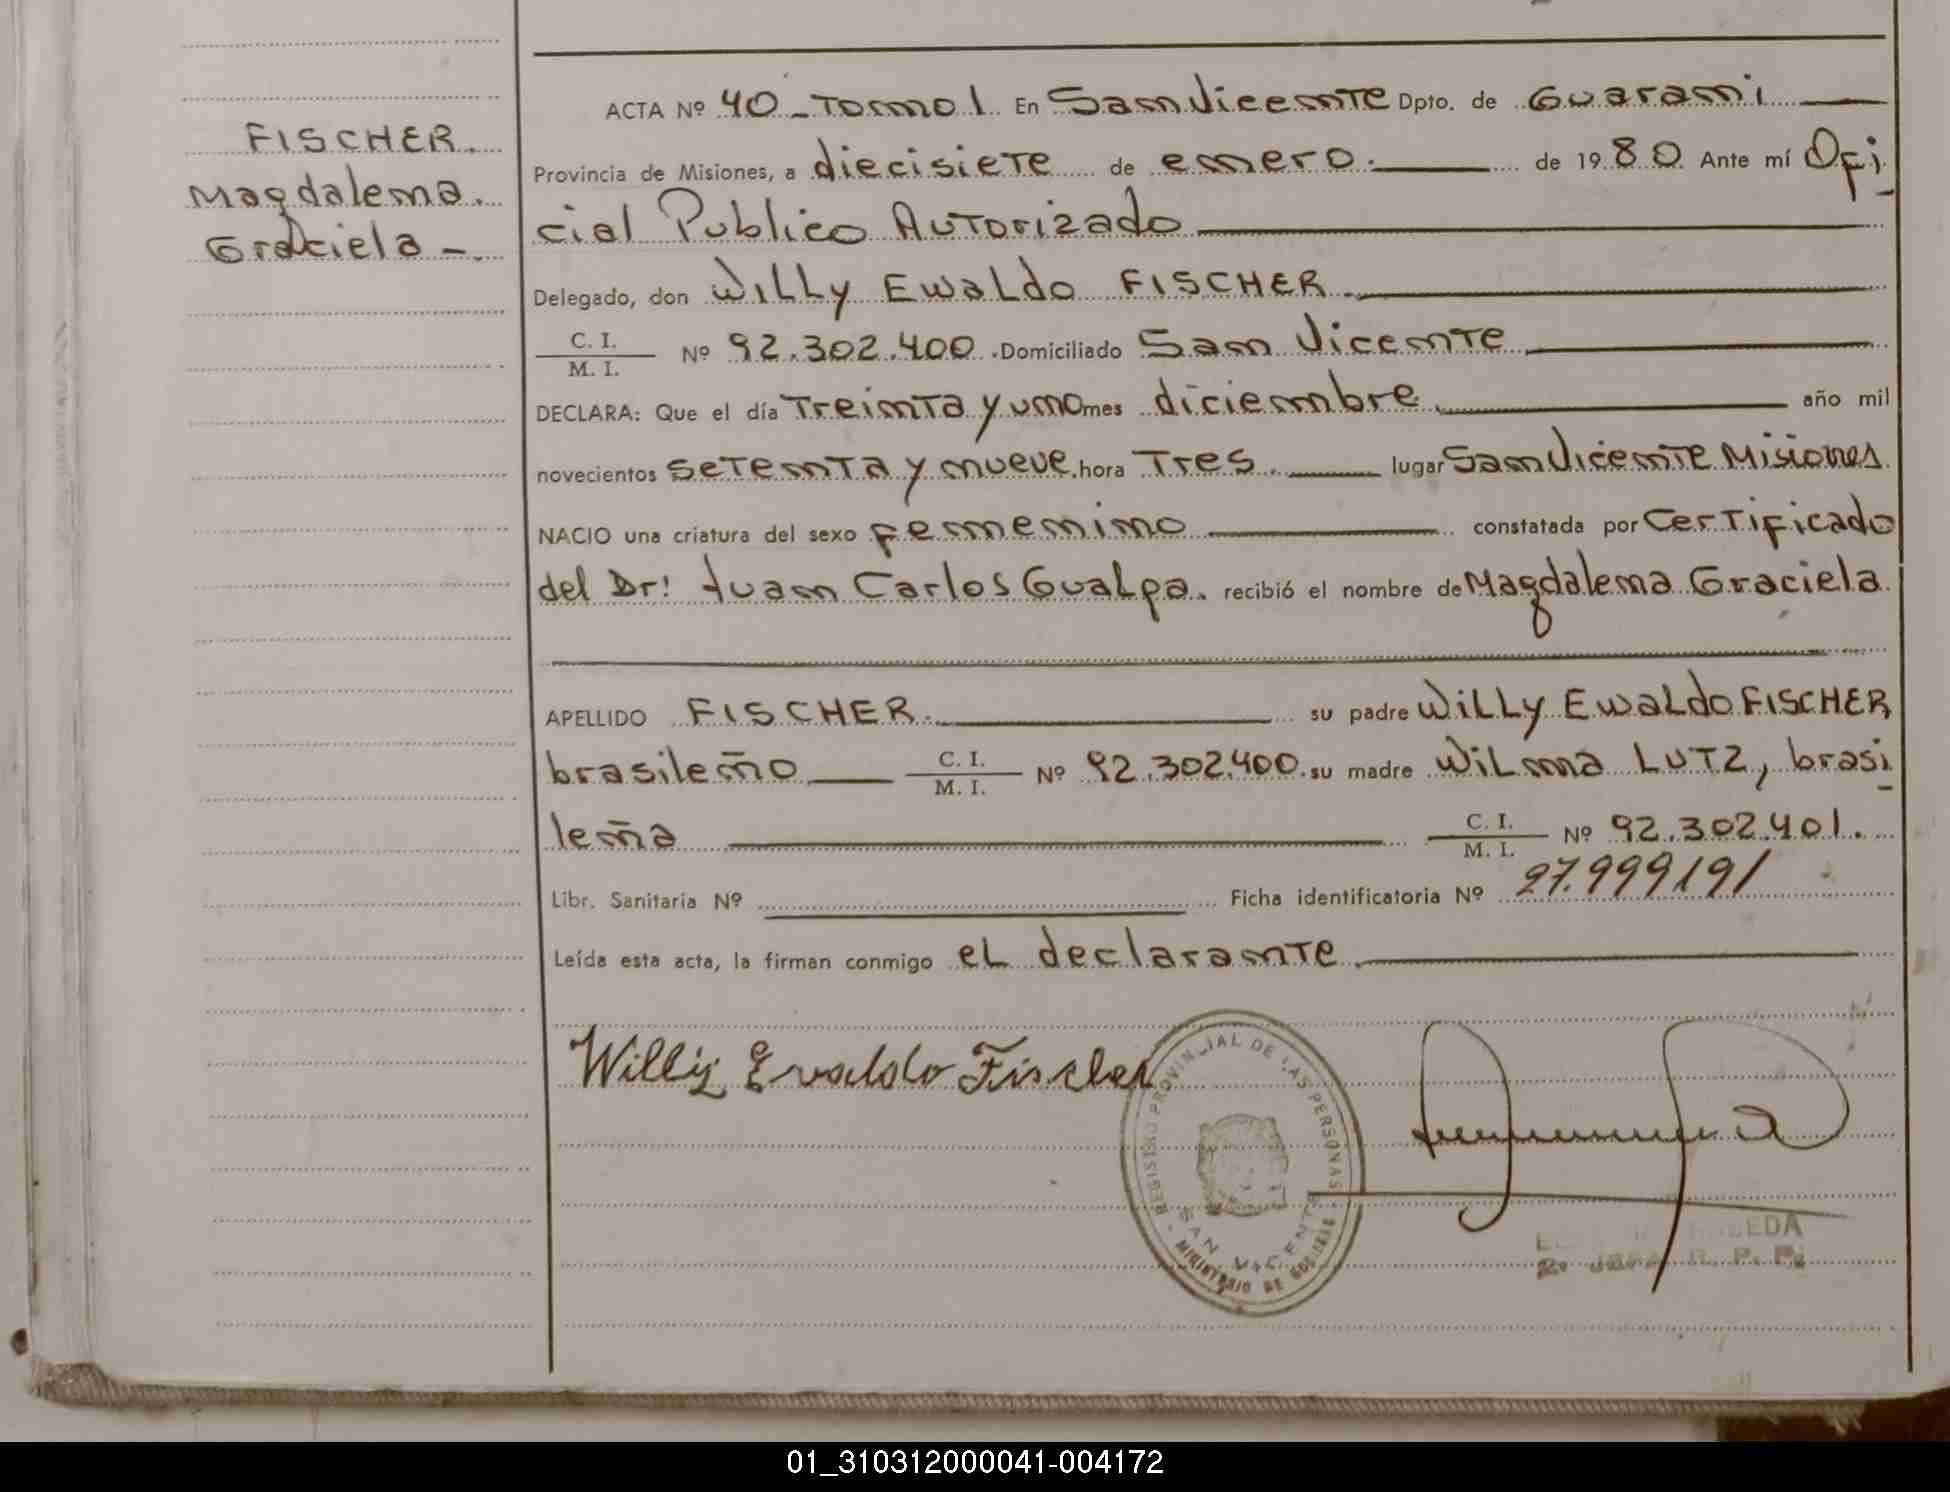 FISCHER.
Magdalena.
Graciela -.
ACTA Nº 40 - Tomo 1 En San Vicente Dpto. de Guarani
Provincia de Misiones, a diecisiete de enero. de 1980 Ante mí Ofi
cial Publico Autorizado
Delegado, don Willy Ewaldo FISCHER.
C. I.
M. I. Nº 92.302.400. Domiciliado San Vicente
DECLARA: Que el día Treinta y uno mes diciembre año mil
novecientos setenta y nueve. hora Tres. lugar San Vicente Misiones
NACIO una criatura del sexo femenino constatada por Certificado
del Dr: Juan Carlos Gualpa. recibió el nombre de Magdalena Graciela
APELLIDO FISCHER. su padre Willy Ewaldo FISCHER,
brasileño C. I.
M. I. Nº 92.302.400. su madre Wilma LUTZ, brasi
leña C. I.
M. I. Nº 92.302.401.
Libr. Sanitaria Nº Ficha identificatoria Nº 27.999191
Leída esta acta, la firman conmigo el declarante.
Willy Evaldo Fischer
REGISTRO PROVINCIAL DE LAS PERSONAS
SAN VICENTE
MINISTERIO DE GOBIERNO
R. P. P.
01_310312000041-004172